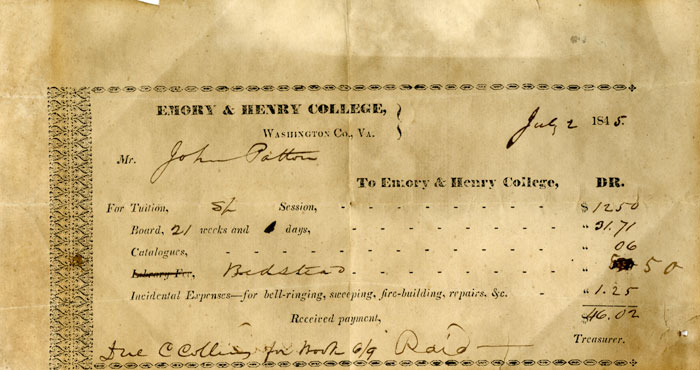 EMORY & HENRY COLLEGE,
WASHINGTON CO., VA.
July 2 1845.
Mr. John Patton
To Emory & Henry College, DR.
For Tuition, Session, $12.50
Board, 21 weeks and days, " 31.71
Catalogues, " 06
Library Fee, Bedstead " 50
Incidental Expenses—for bell-ringing, sweeping, fire-building, repairs, &c. " 1.25
Received payment, $46.02
Treasurer.
Due C Collins for Book 6/9 Paid